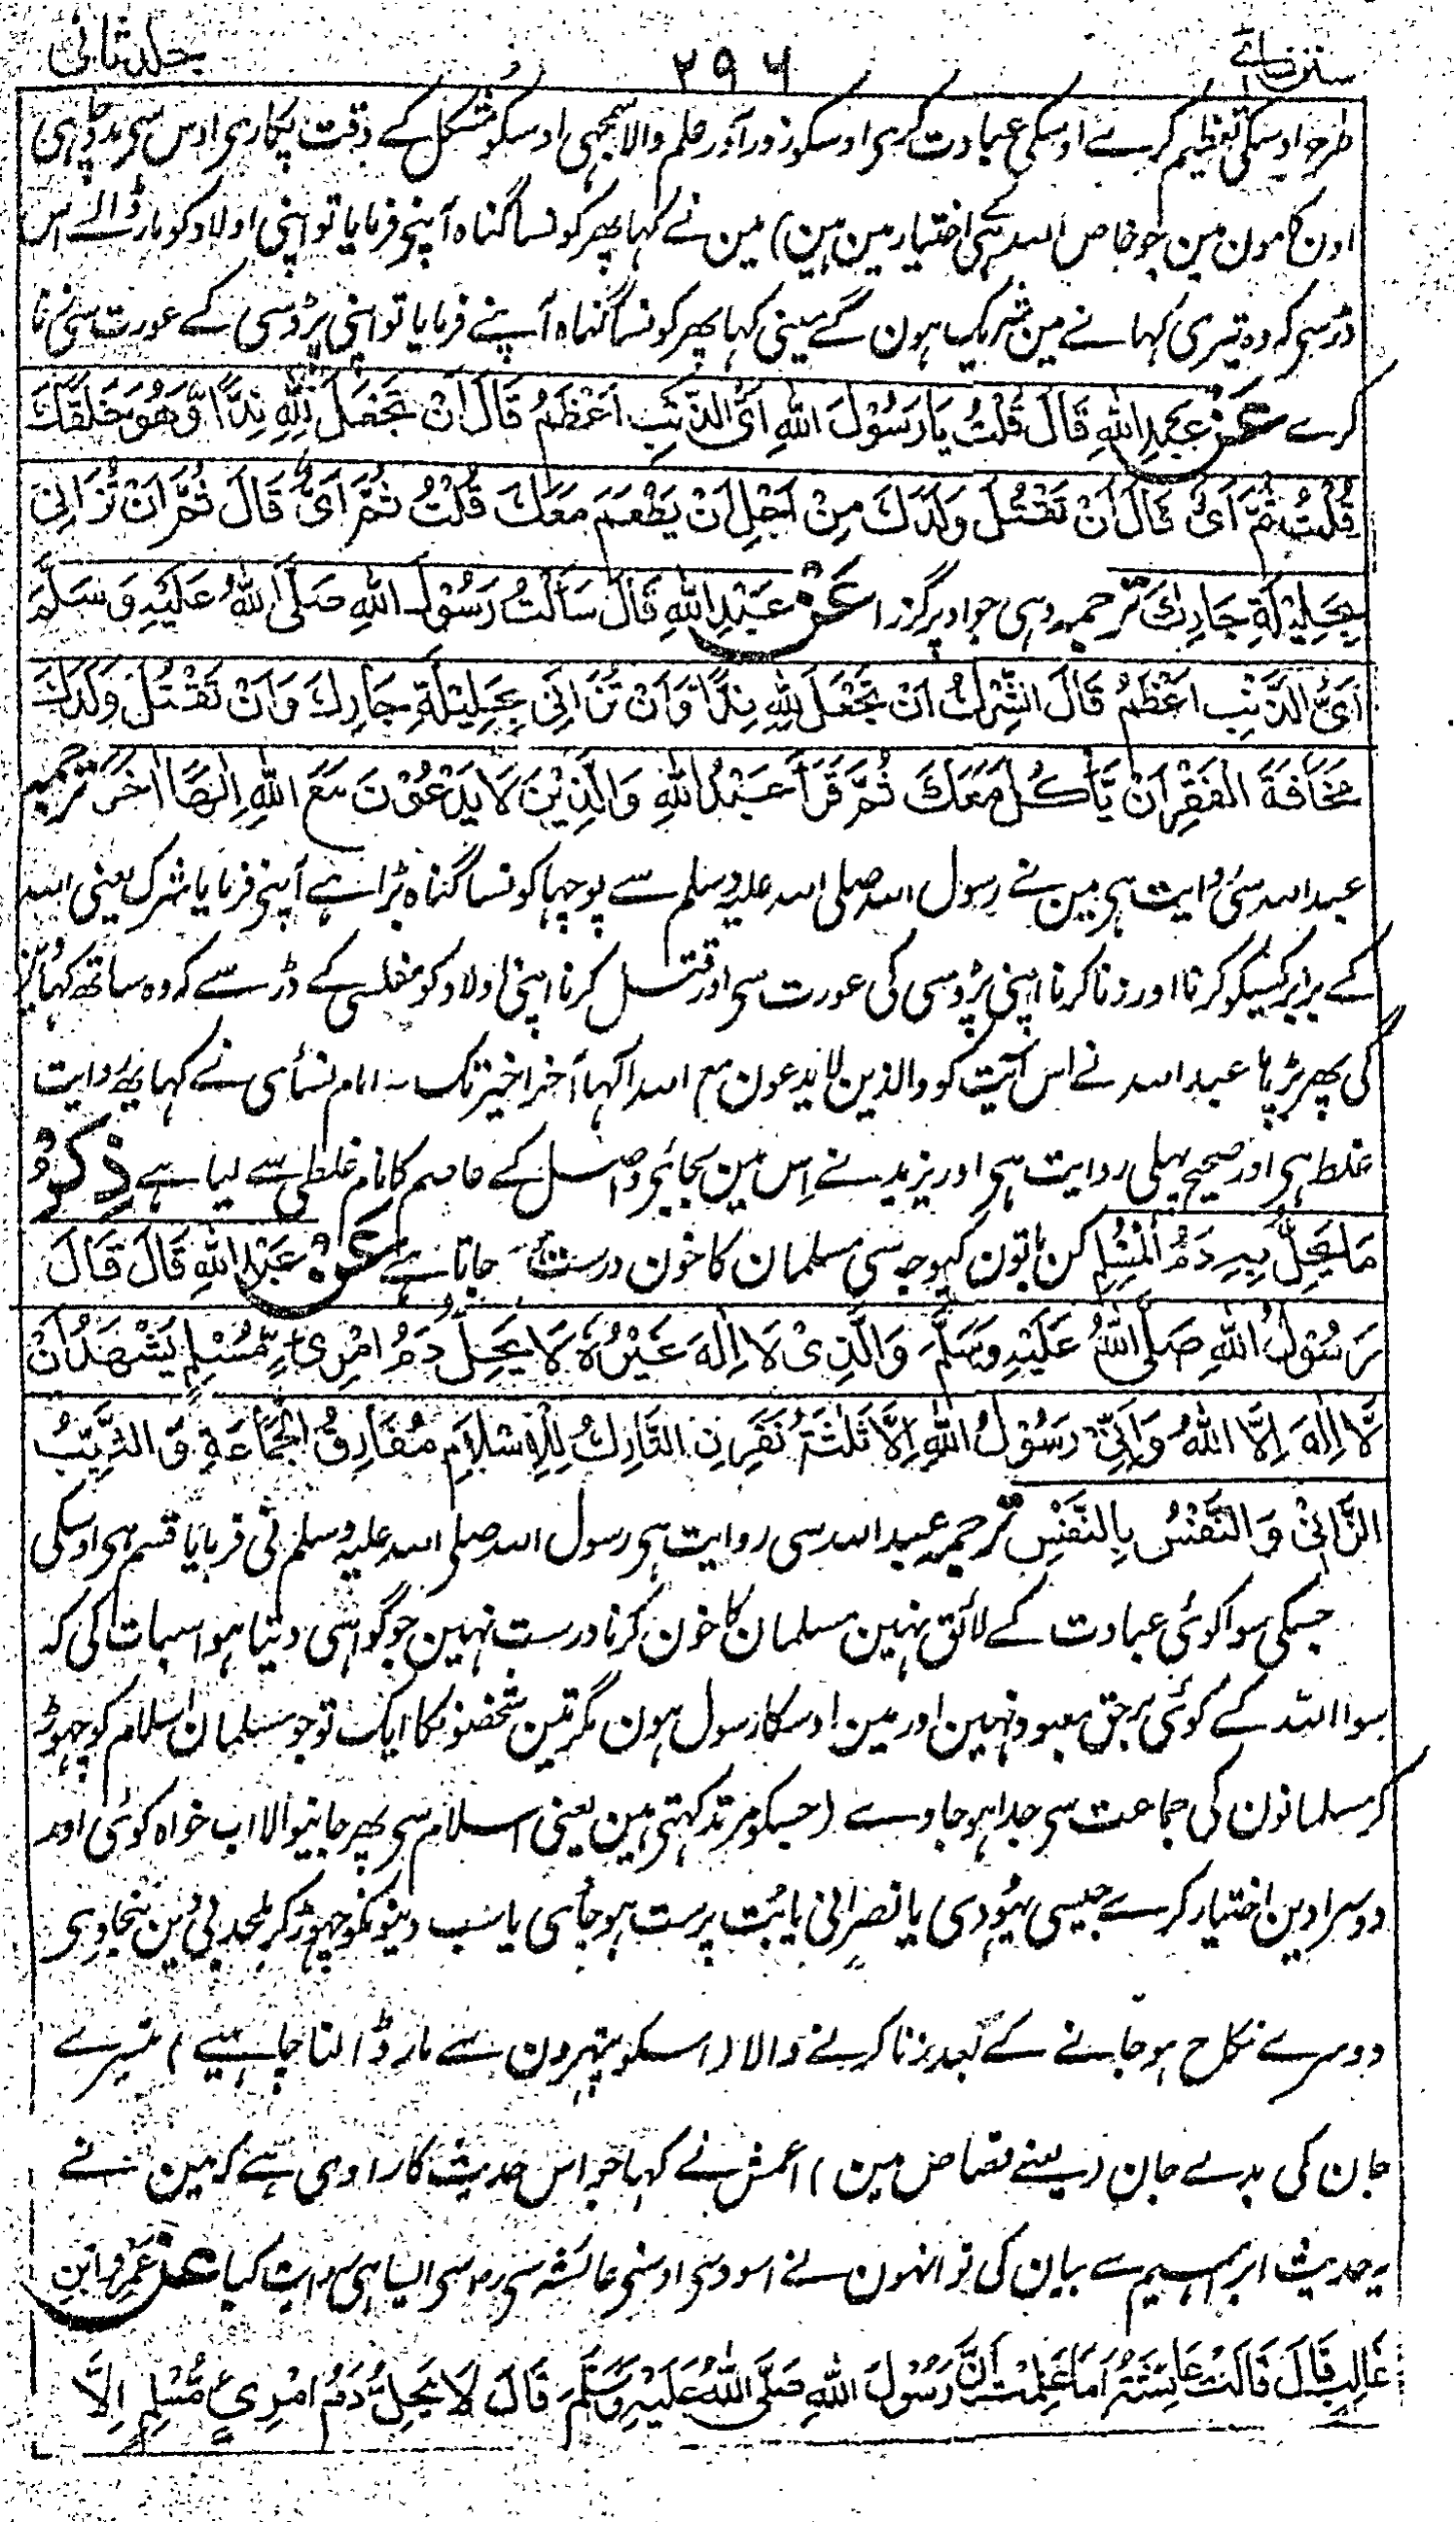 سنن نسائے ۲۹۶ جلد ثانی
طرح اوسکی تعظیم کرے اوسکی عبادت کری اوسکو زور آور علم والا سمجہی اوسکو مشکل کے وقت پکاری اوس سی مدد چاہی
اون کامون مین جو خاص اللہ کے ہی اختیار مین ہین) مین نے کہا پھر کونسا گناہ آپنی فرمایا تو اپنی اولاد کو مار ڈالے اس
ڈر سی کہ وہ تیری کہانے مین شریک ہون گے مینی کہا پھر کونسا گناہ آپنے فرمایا تو اپنی پڑوسی کے عورت سی زنا
کرے عَنْ عَبْدِ اللهِ قَالَ قُلْتُ يَا رَسُوْلَ اللهِ اَىُّ الذَّنْبِ اَعْظَمُ قَالَ اَنْ تَجْعَلَ لِلّٰهِ نِدًّا وَّهُوَ خَلَقَكَ
قُلْتُ ثُمَّ اَىُّ قَالَ اَنْ تَقْتُلَ وَلَدَكَ مِنْ اَجْلِ اَنْ يَطْعَمَ مَعَكَ قُلْتُ ثُمَّ اَىُّ قَالَ ثُمَّ اَنْ تُزَانِىَ
بِحَلِيْلَةِ جَارِكَ ترجمہ وہی جو اوپر گزرا عَنْ عَبْدِ اللهِ قَالَ سَاَلْتُ رَسُوْلَ اللهِ صَلَّى اللهُ عَلَيْهِ وَسَلَّمَ
اَىُّ الذَّنْبِ اَعْظَمُ قَالَ الشِّرْكُ اَنْ تَجْعَلَ لِلّٰهِ نِدًّا وَاَنْ تُزَانِىَ بِحَلِيْلَةِ جَارِكَ وَاَنْ تَقْتُلَ وَلَدَكَ
مَخَافَةَ الْفَقْرِ اَنْ يَّأْكُلَ مَعَكَ ثُمَّ قَرَاَ عَبْدُ اللهِ وَالَّذِيْنَ لَا يَدْعُوْنَ مَعَ اللهِ اِلٰهًا اٰخَرَ ترجمہ
عبد اللہ سی روایت ہی مین نے رسول اللہ صلی اللہ علیہ وسلم سے پوچہا کونسا گناہ بڑا ہے آپنی فرمایا شرک یعنی اللہ
کے برابر کسیکو کرنا اور زنا کرنا اپنی پڑوسی کی عورت سی اور قتل کرنا اپنی اولاد کو مفلسی کے ڈر سے کہ وہ ساتھ کہائین
کی پھر پڑہا عبد اللہ نے اس آیت کو والذین لا یدعون مع اللہ الٰہا آخر اخیر تک ۔ امام نسائی نے کہا یہ روایت
غلط ہی اور صحیح پہلی روایت ہی اور یزید نے اس مین بجائی واصل کے عاصم کا نام غلطی سے لیا ہے ذِكْرُ
مَا يَحِلُّ بِهٖ دَمُ الْمُسْلِمِ کن باتون کیوجہ سی مسلمان کا خون درست ہو جاتا ہے عَنْ عَبْدِ اللهِ قَالَ قَالَ
رَسُوْلُ اللهِ صَلَّى اللهُ عَلَيْهِ وَسَلَّمَ وَالَّذِىْ لَا اِلٰهَ غَيْرُهٗ لَا يَحِلُّ دَمُ امْرِئٍ مُّسْلِمٍ يَشْهَدُ اَنْ
لَّا اِلٰهَ اِلَّا اللهُ وَاَنِّىْ رَسُوْلُ اللهِ اِلَّا ثَلٰثَةُ نَفَرٍ نِ التَّارِكُ لِلْاِسْلَامِ مُفَارِقُ الْجَمَاعَةِ وَ الثَّيِّبُ
الزَّانِىْ وَ النَّفْسُ بِالنَّفْسِ ترجمہ عبد اللہ سی روایت ہی رسول اللہ صلی اللہ علیہ وسلم نی فرمایا قسم ہی اوسکی
جسکی سوا کوئی عبادت کے لائق نہین مسلمان کا خون کرنا درست نہین جو گواہی دیتا ہو اسبات کی کہ
سوا اللہ کے کوئی برحق معبود نہین اور مین اوسکا رسول ہون مگر تین شخصونکا ایک تو جو مسلمان اسلام کو چہوڑ
کر مسلمانون کی جماعت سی جدا ہو جاوے (جسکو مرتد کہتی ہین یعنی اسلام سی پھر جانیوالا اب خواہ کوئی اور
دوسرا دین اختیار کرے جیسی یہودی یا نصرانی یا بت پرست ہو جائی یا سب دینونکو چہوڑ کر ملحد بی دین بنجاوی
دوسرے نکاح ہو جانے کے بعد زنا کرنے والا (اسکو پتہرون سے مار ڈالنا چاہیے) تیسرے
جان کی بدلے جان (یعنے قصاص مین) اعمش نے کہا جو اس حدیث کا راوی ہے کہ مین نے
یہ حدیث ابراہیم سے بیان کی تو انہون نے اسود سی اوسنی عائشہ سی رض سی ایسا ہی روایت کیا عَنْ عَمْرِو ابْنِ
غَالِبٍ قَالَ قَالَتْ عَائِشَةُ اَمَا عَلِمْتَ اَنَّ رَسُوْلَ اللهِ صَلَّى اللهُ عَلَيْهِ وَسَلَّمَ قَالَ لَا يَحِلُّ دَمُ امْرِئٍ مُّسْلِمٍ اِلَّا